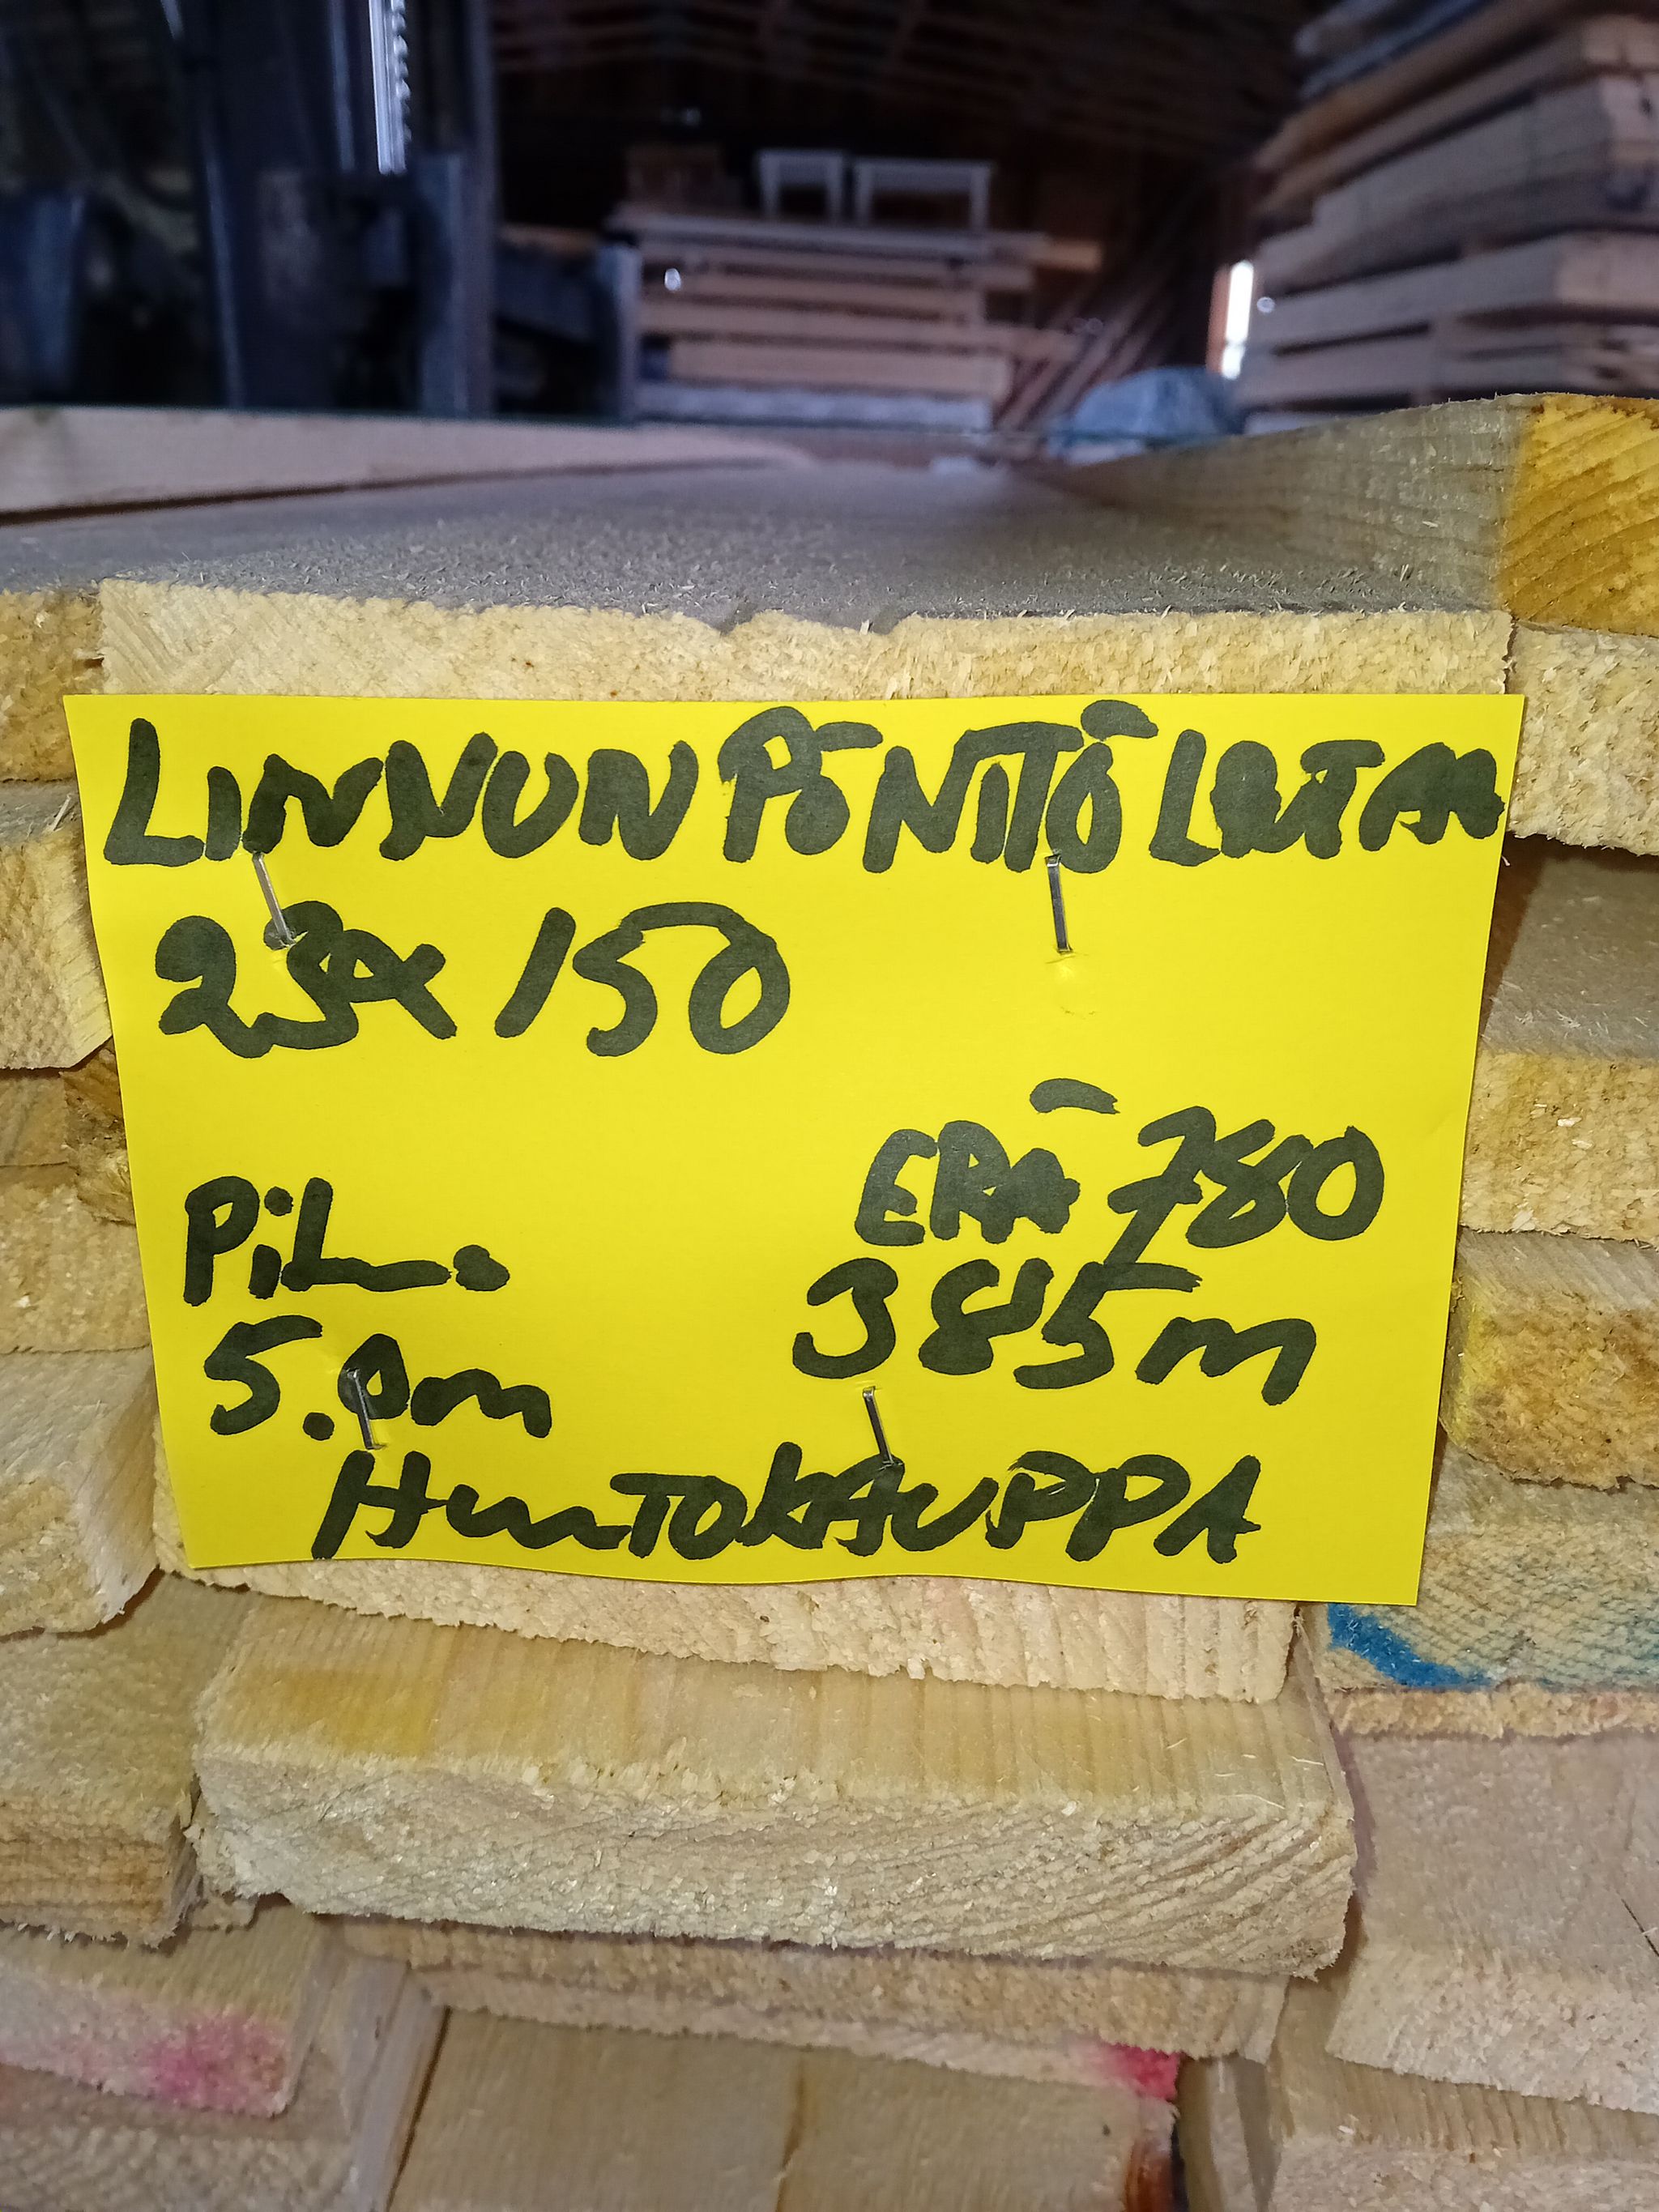 LINNUNPÖNTTÖLAUTAA
23x150
ERÄ 780
PiL. 385m
5.0m
HUUTOKAUPPA